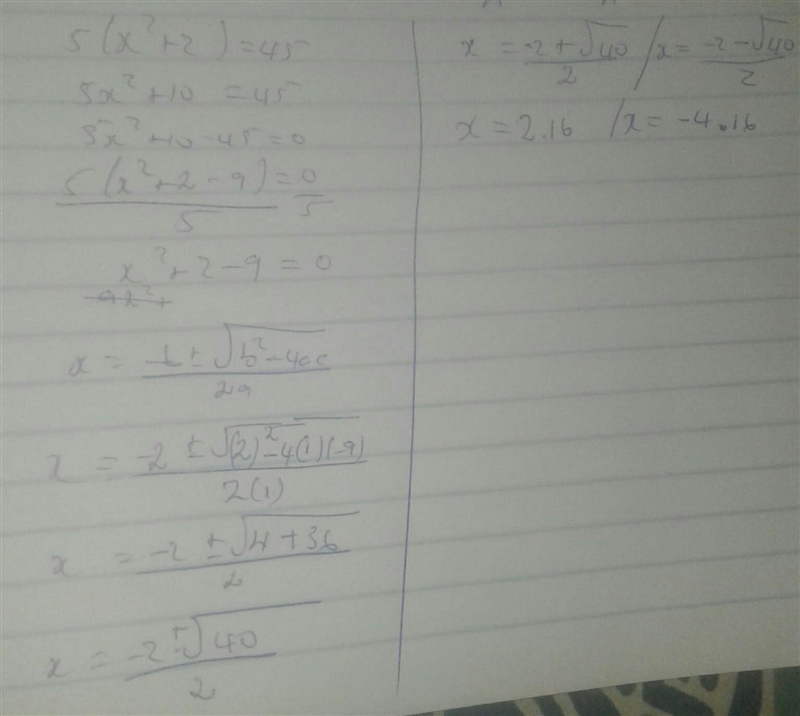 5(x²+2)=45
5x²+10 =45
5x²+10-45=0
5(x²+2-9)=0
5 5
x²+2-9=0
9x²+
x = -b±√b²-4ac
2a
x = -2 ±√(2)²-4(1)(-9)
2(1)
x = -2 ±√4+36
2
x = -2±√40
2
x = -2+√40 / x = -2-√40
2 2
x = 2.16 / x = -4.16